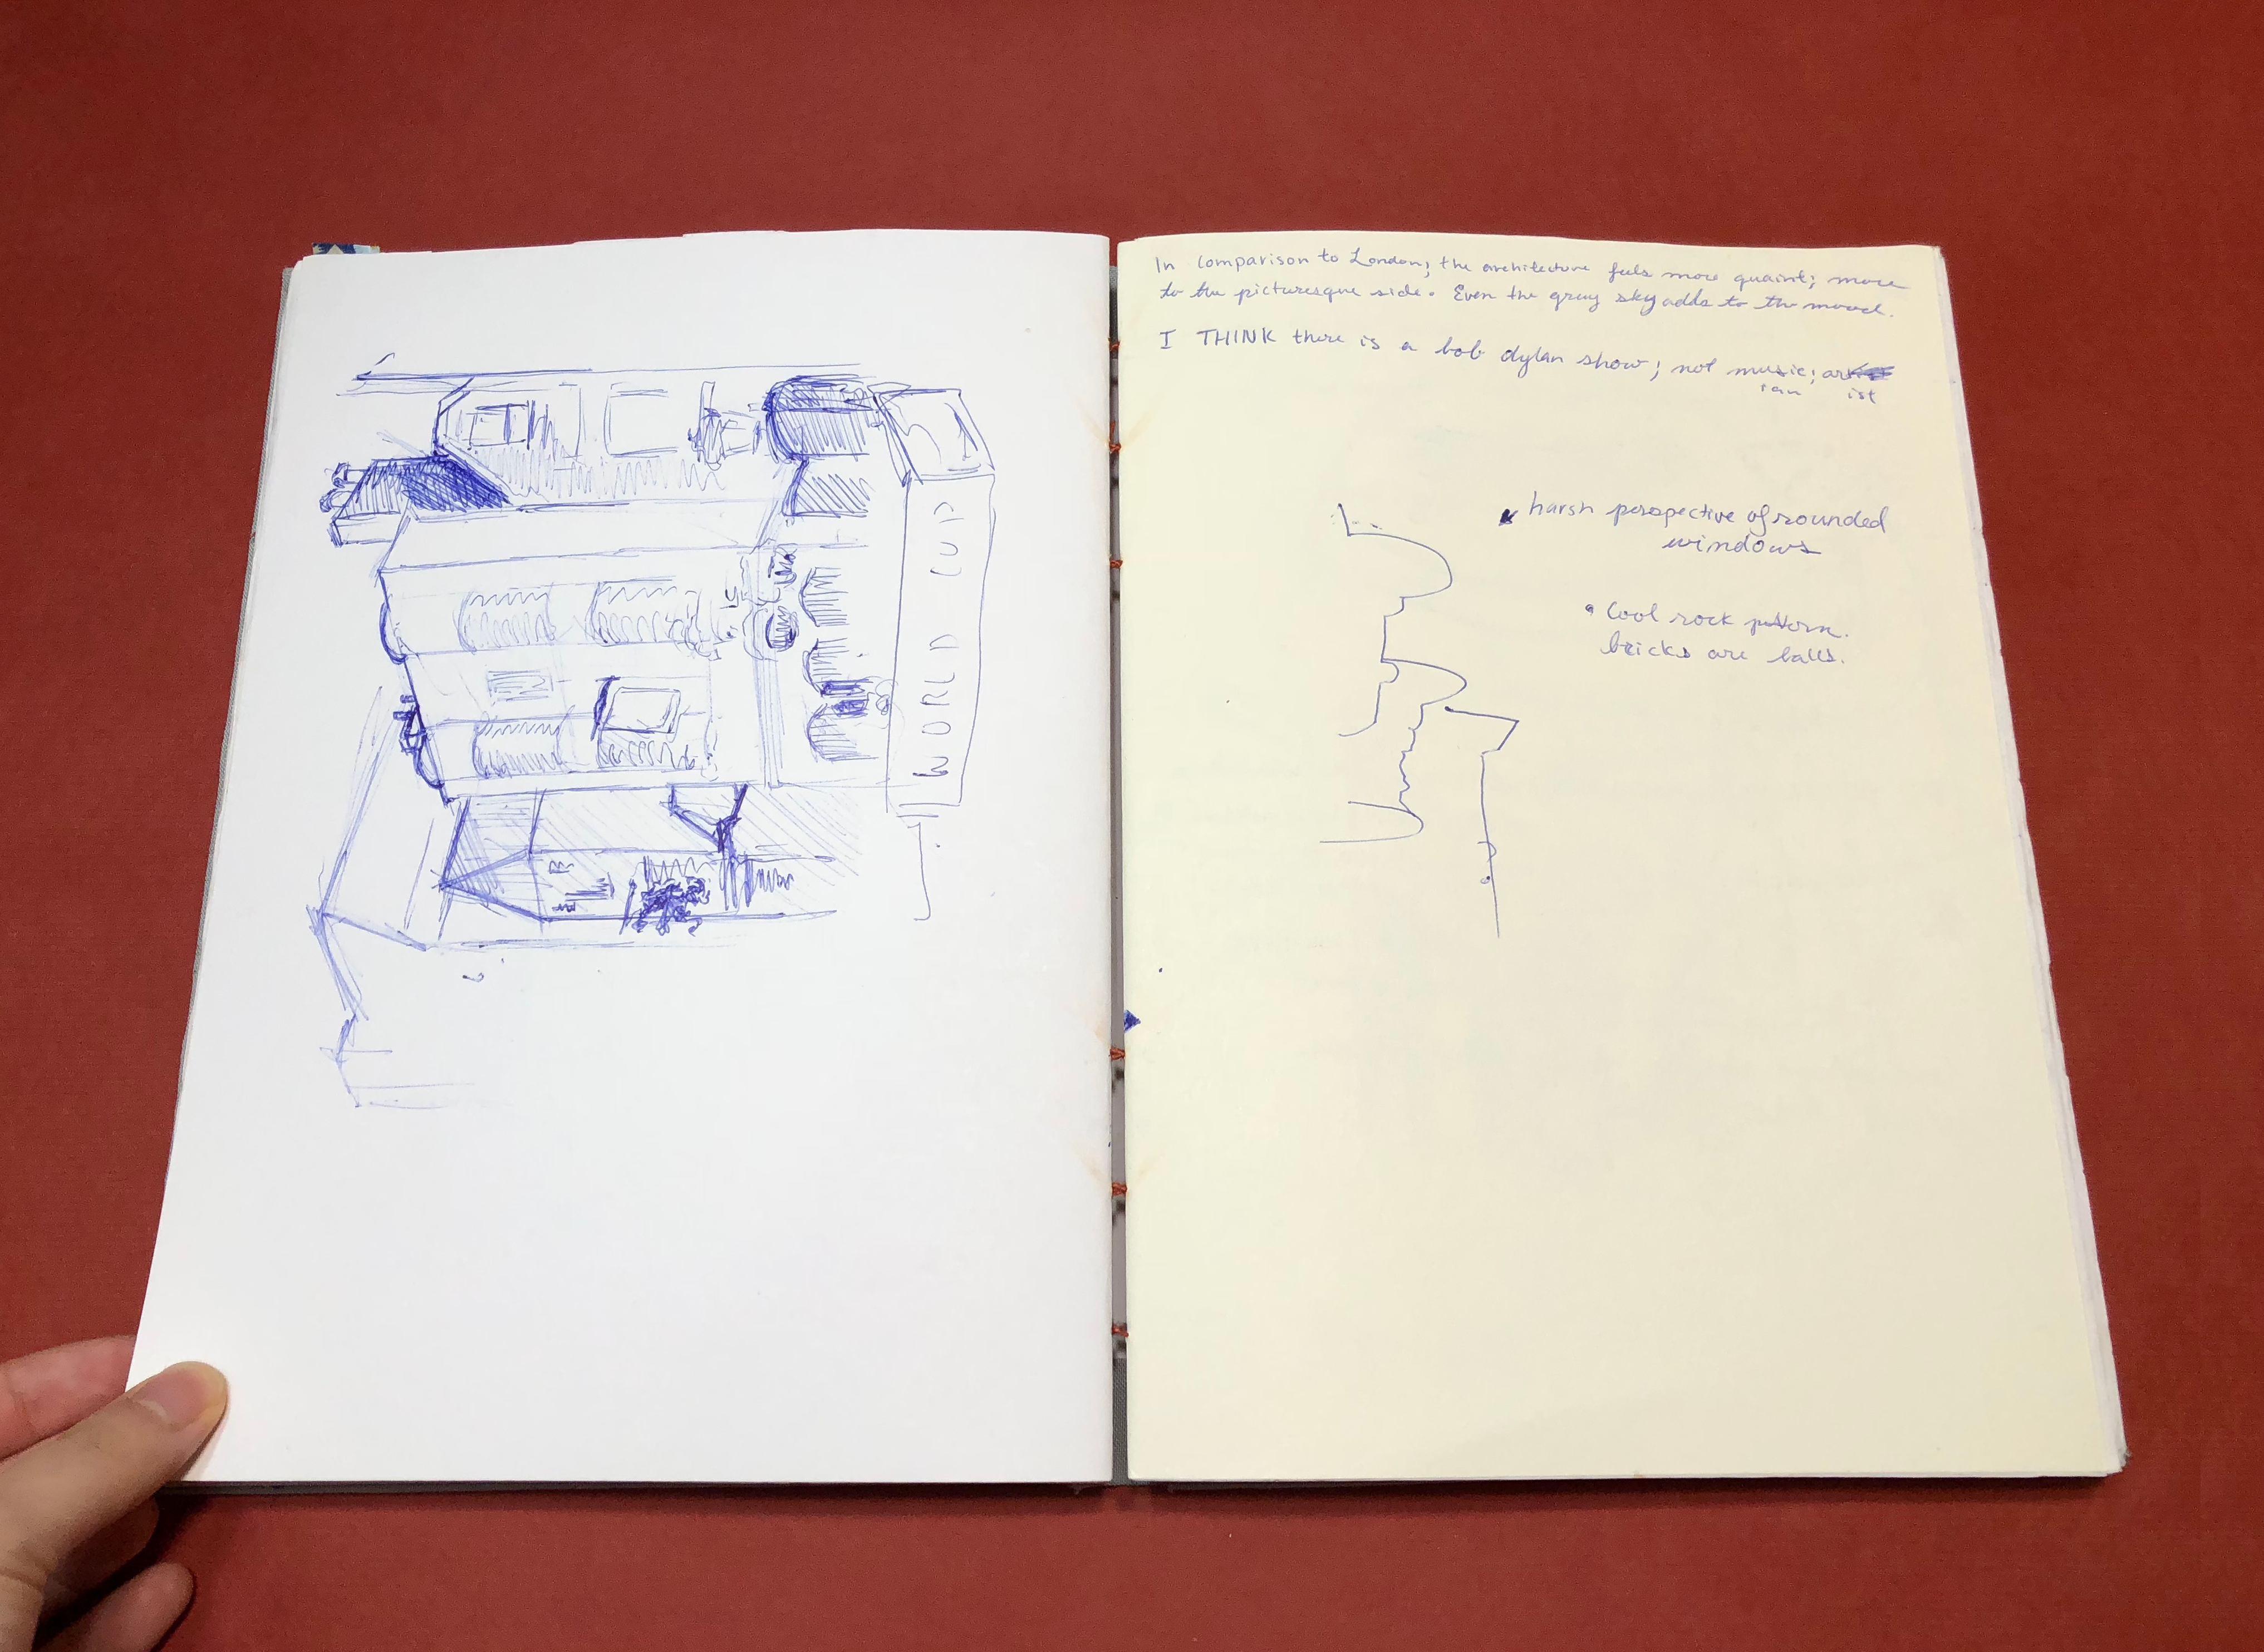 WORLD CUP
In comparison to London, the architecture feels more quaint; more
to the picturesque side. Even the gray sky adds to the mood.
I THINK there is a bob dylan show; not music; art
ian ist
harsh perspective of rounded
windows
• Cool rock pattern.
bricks are balls.